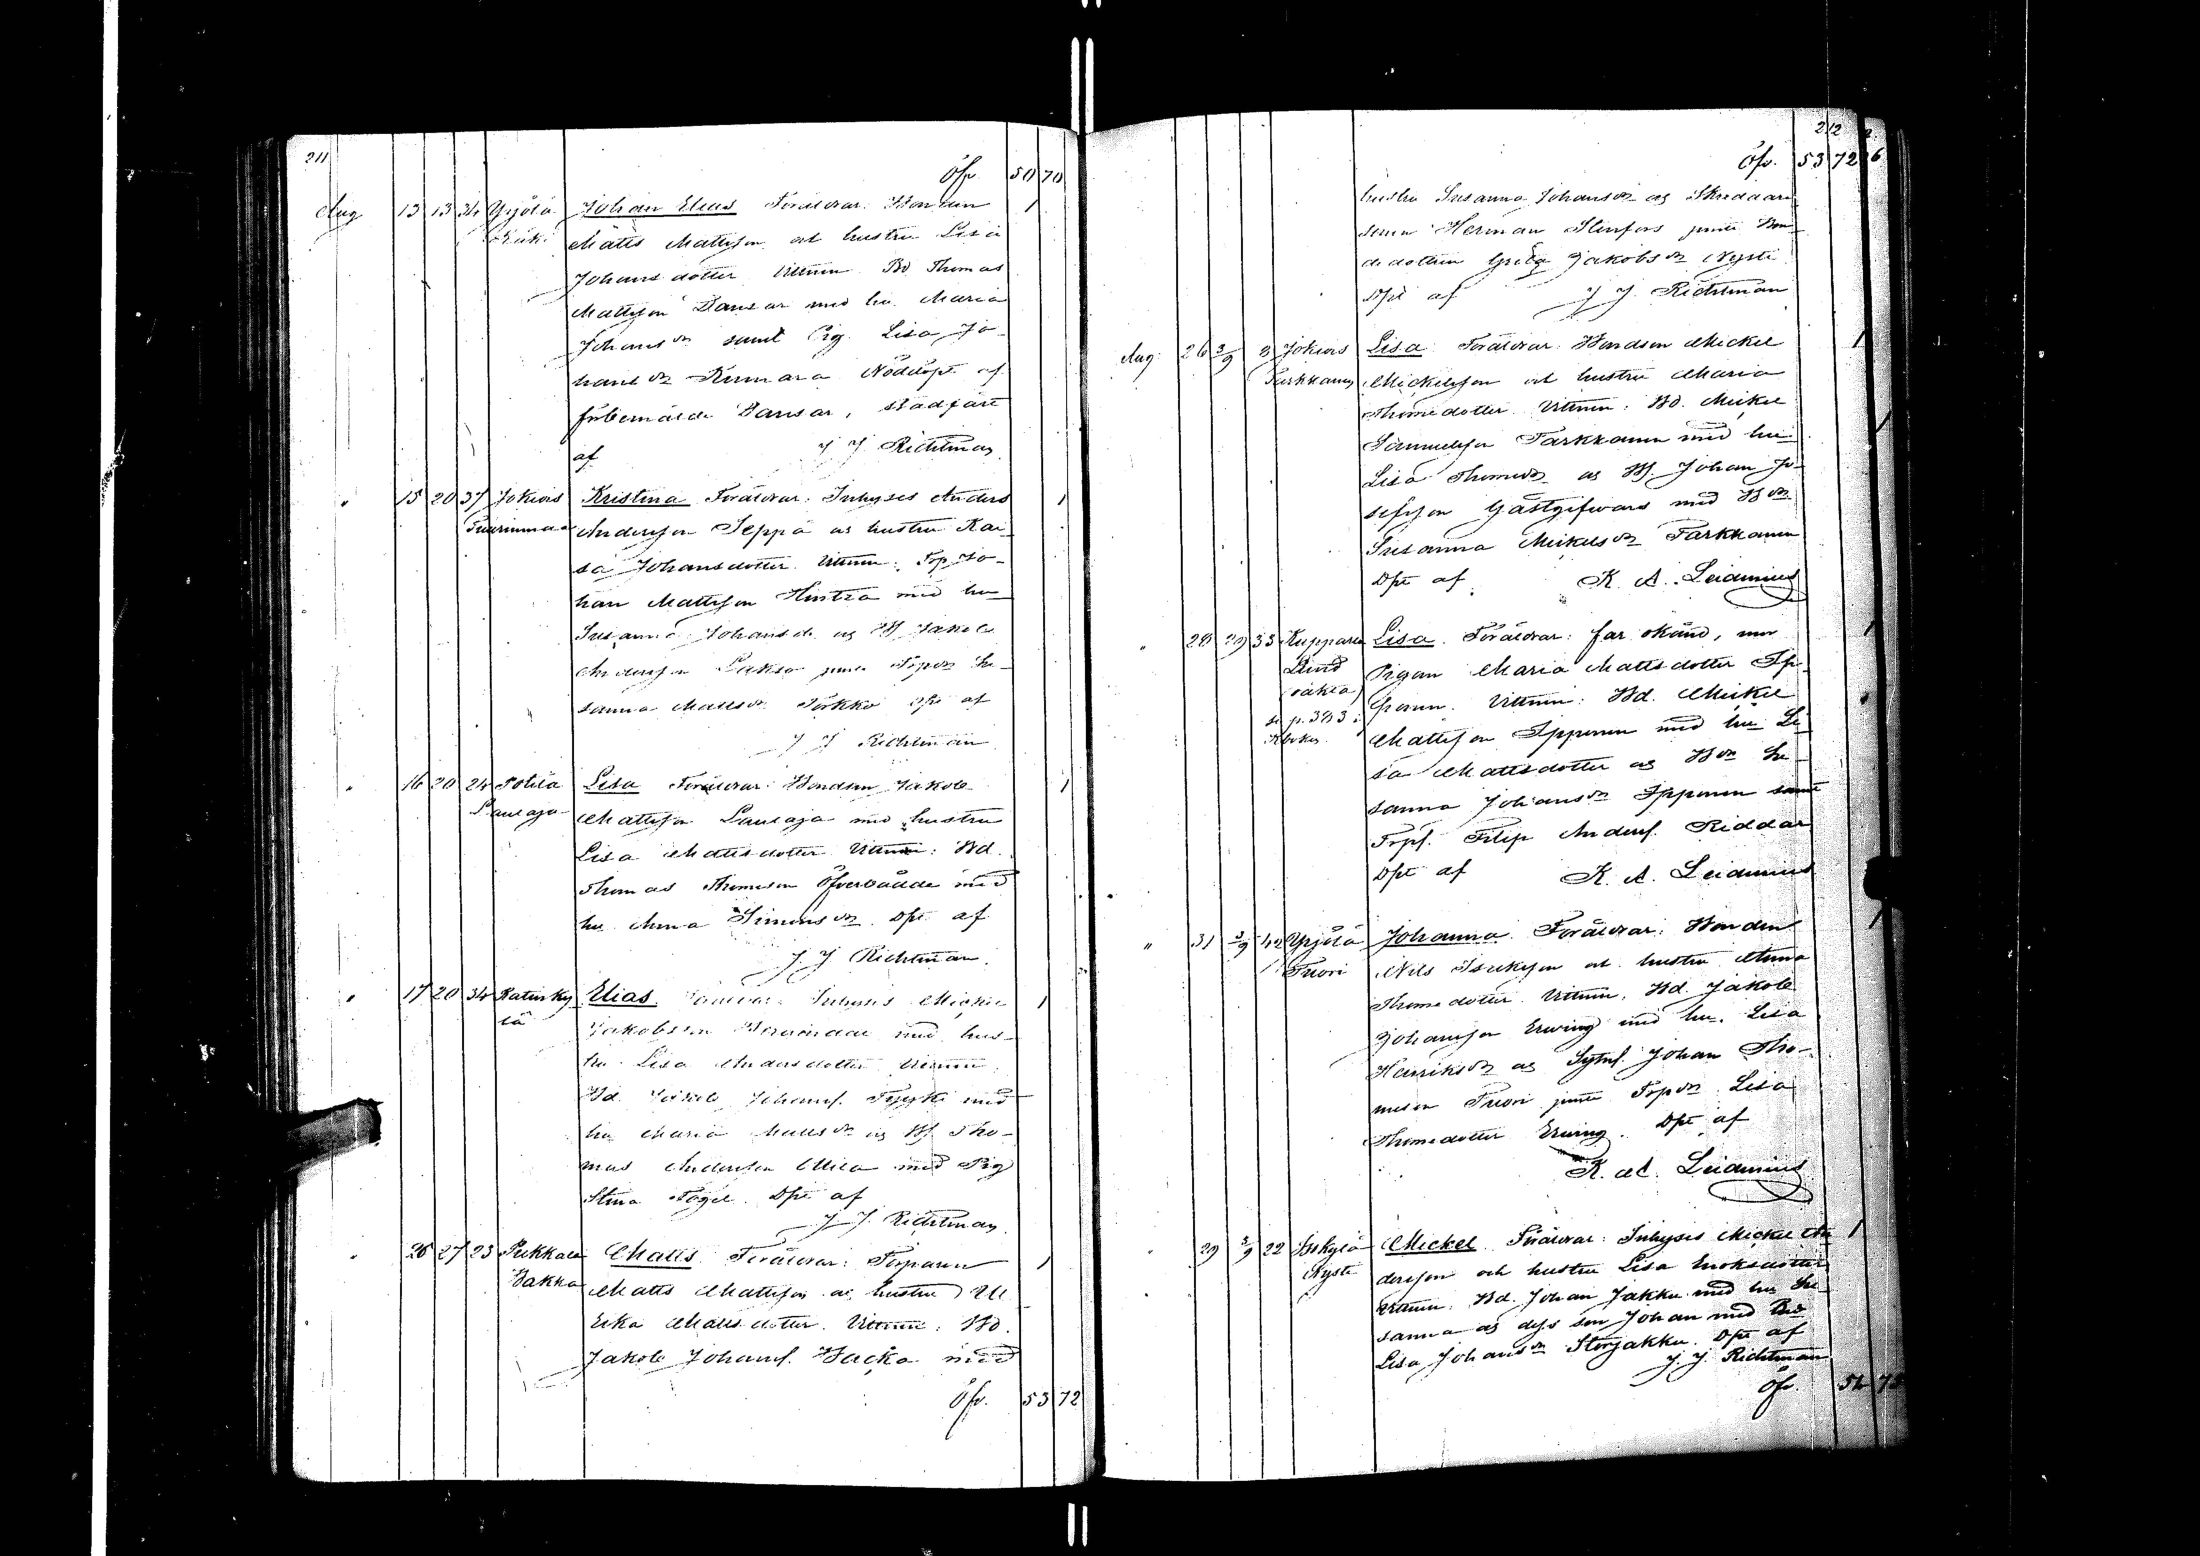 211
Öfv. 50 70
Aug. 13 13 34 Yrjölä Johan Elias Föräldrar: Bonden 1
Matts Mattsson och hustru Lisa
Johansdotter Vittnen Bd Thomas
Mattsson Dansar med hu Maria
Johansdr samt Pig. Lisa Jo-
hansdr Kumara Nöddöpt af
förbemälde Dansar, stadfäst
af J J Richtman
" 15 20 37 Jokiois Kristina Föräldrar: Inhyses Anders 1
Tuurinmaa Andersson Seppä och hustru Kai-
sa Johansdotter Vittnen: Torp Jo-
han Mattsson Hintza med hu
Susanna Johansdr og BS Jakob
Andersson Laksa jemte Torpdr Su-
sanna Mattsdr Törkkö Dpt af
J J Richtman
" 16 20 24 Potila Lisa Föräldrar: Bondsn Jakob 1
Lausaja Mattsson Lausaja med hustru
Lisa Mattsdotter Vittnen: Bd.
Thomas Thomsson Öfverbäcke med
hu Anna Simonsdr Dpt af
J. J Richtman.
" 17 20 34 Katinky Elias. Föräldrar Inhyses Mickel 1
lä
Jakobsson med hus-
tru Lisa Andersdotter Vittnen:
Bd. Jakob Johanss. med
hu Maria Mattsdr og BS Tho-
mas Andersson med Pig
Stina Fogel. Dpt af
J J. Richtman
" 26 27 23 Pukkala Matts Föräldrar: Torparen 1
Jakka Matts Mattsson och hustru Ul
rika Mattsdotter. Vittnen: Bd.
Jakob Johanss. Backa med
Öfv. 53 72
212
Öfv. 53 72
hustru Susanna Johansdr og Skreddare
sonen Herman Stenfors jemte Bon
dedottren Greta Jakobsdr Nysti
Dpt af J J. Richtman
Aug. 26 3/9 8 Jokiois Lisa Föräldrar: Bondson Mickel 1
Tarkkanen Mickelsson och hustru Maria
Thomædotter Vittnen: Bd. Mickel
Samuelsson Tarkkanen med hu
Lisa Thomædr og BS. Johan Jo-
sefsson Gästgifvars med Bdr
Susanna Mickelsdr Tarkkanen
Dpt af K. A. Leidenius
" 28 29 33 Kuppare Lisa. Föräldrar: far okänd, mor 1
Lund Pigan Maria Mattsdotter Ip-
(oäkta) panen. Vittnen: Bd. Mickel
se p. 383 i Mattsson Ippanen med hu Li
Kboken sa Mattsdotter og Bdr Su-
sanna Johansdr Ippanen samt
Torps. Filip Anderss. Riddar
Dpt af K. A. Leidenius
" 31 3/9 42 Yrjölä Johanna. Föräldrar: Bonden 1
Tuori Nils Isaksson och hustru Anna
Thomædotter Vittnen. Bd. Jakob
Johansson Erving med hu. Lisa
Henriksdr og Johan Tho-
messon Tuori jemte Torpdr Lisa
Thomædotter Erving. Dpt af
K. A. Leidenius
" 29 3/9 22 Mickel Föräldrar: Inhyses Mickel An 1
Nysti dersson och hustru Lisa Eriksdotter
Vittnen: Bd. Johan Jakku med hu Su
sanna og dess son Johan med Bd
Lisa Johansdr Storjakku. Dpt af
J. J. Richtman
Öfv. 54 75